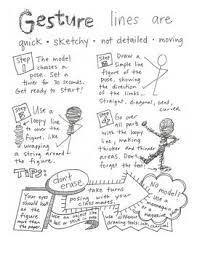 Gesture lines are
quick • sketchy • not detailed • moving
Step 1 The model
chooses a
pose. Set a
timer for 30 seconds.
Get ready to start!
Step 2 Draw a
Simple line
figure of the
pose, showing
the direction
of the limbs-
Straight, diagonal, and
curved
Step 3 Use a
loopy line
over the
figure, like
wrapping
a string around
the figure.
Step 4 Go over
all parts
with the loopy
line, making
thicker and thinner
areas. Don't
forget the feet!
TIPS:
don't
erase
Your eyes
should look
at the
figure more
than the
paper.
take turns
posing
your
classmates
Use an object
No model?
Use a
mannequin
or a
magazine
drawing tools